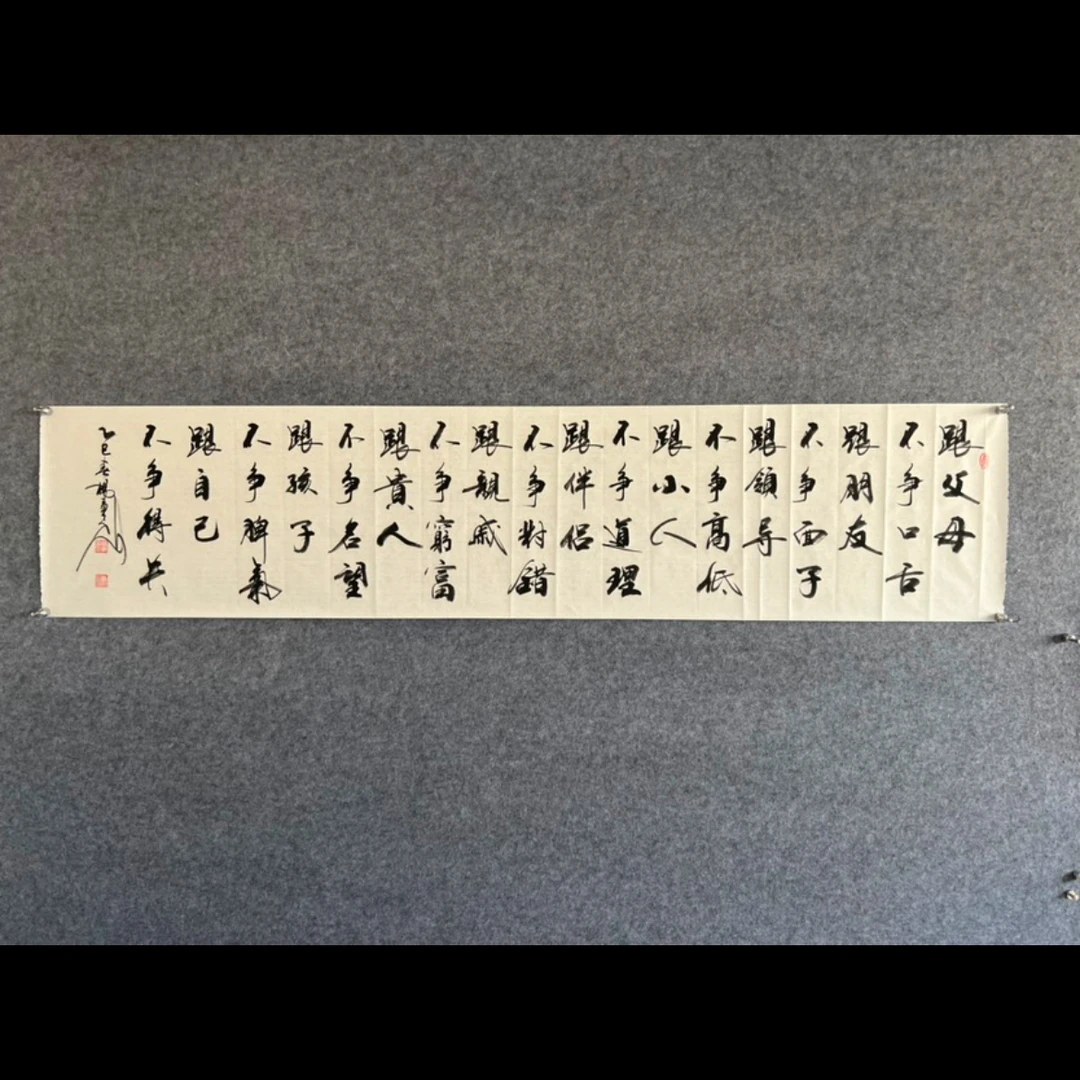 跟父母
不争口舌
跟朋友
不争面子
跟領导
不争髙低
跟小人
不争道理
跟伴侣
不争對錯
跟親戚
不争窮富
跟貴人
不争名望
跟孩子
不争脾氣
跟自己
不争得失
乙巳春楊